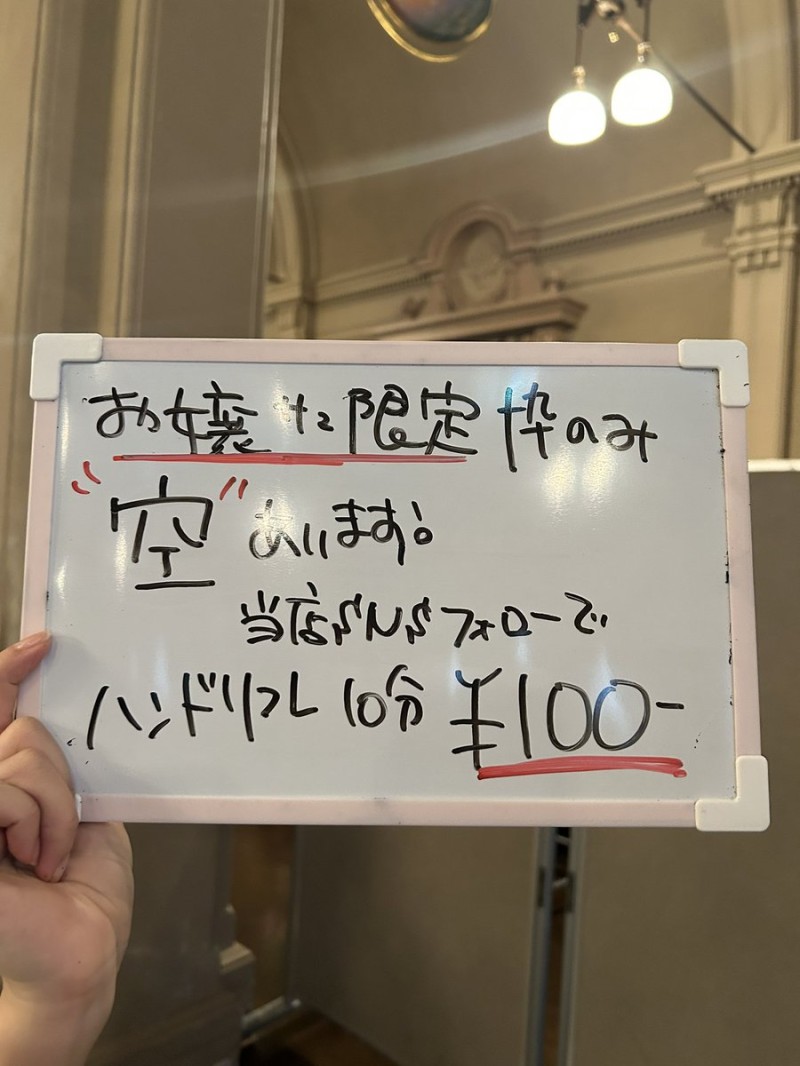 お嬢サマ限定枠のみ
"空"あります!
当店SNSフォローで
ハンドリフレ 10分 ¥100-